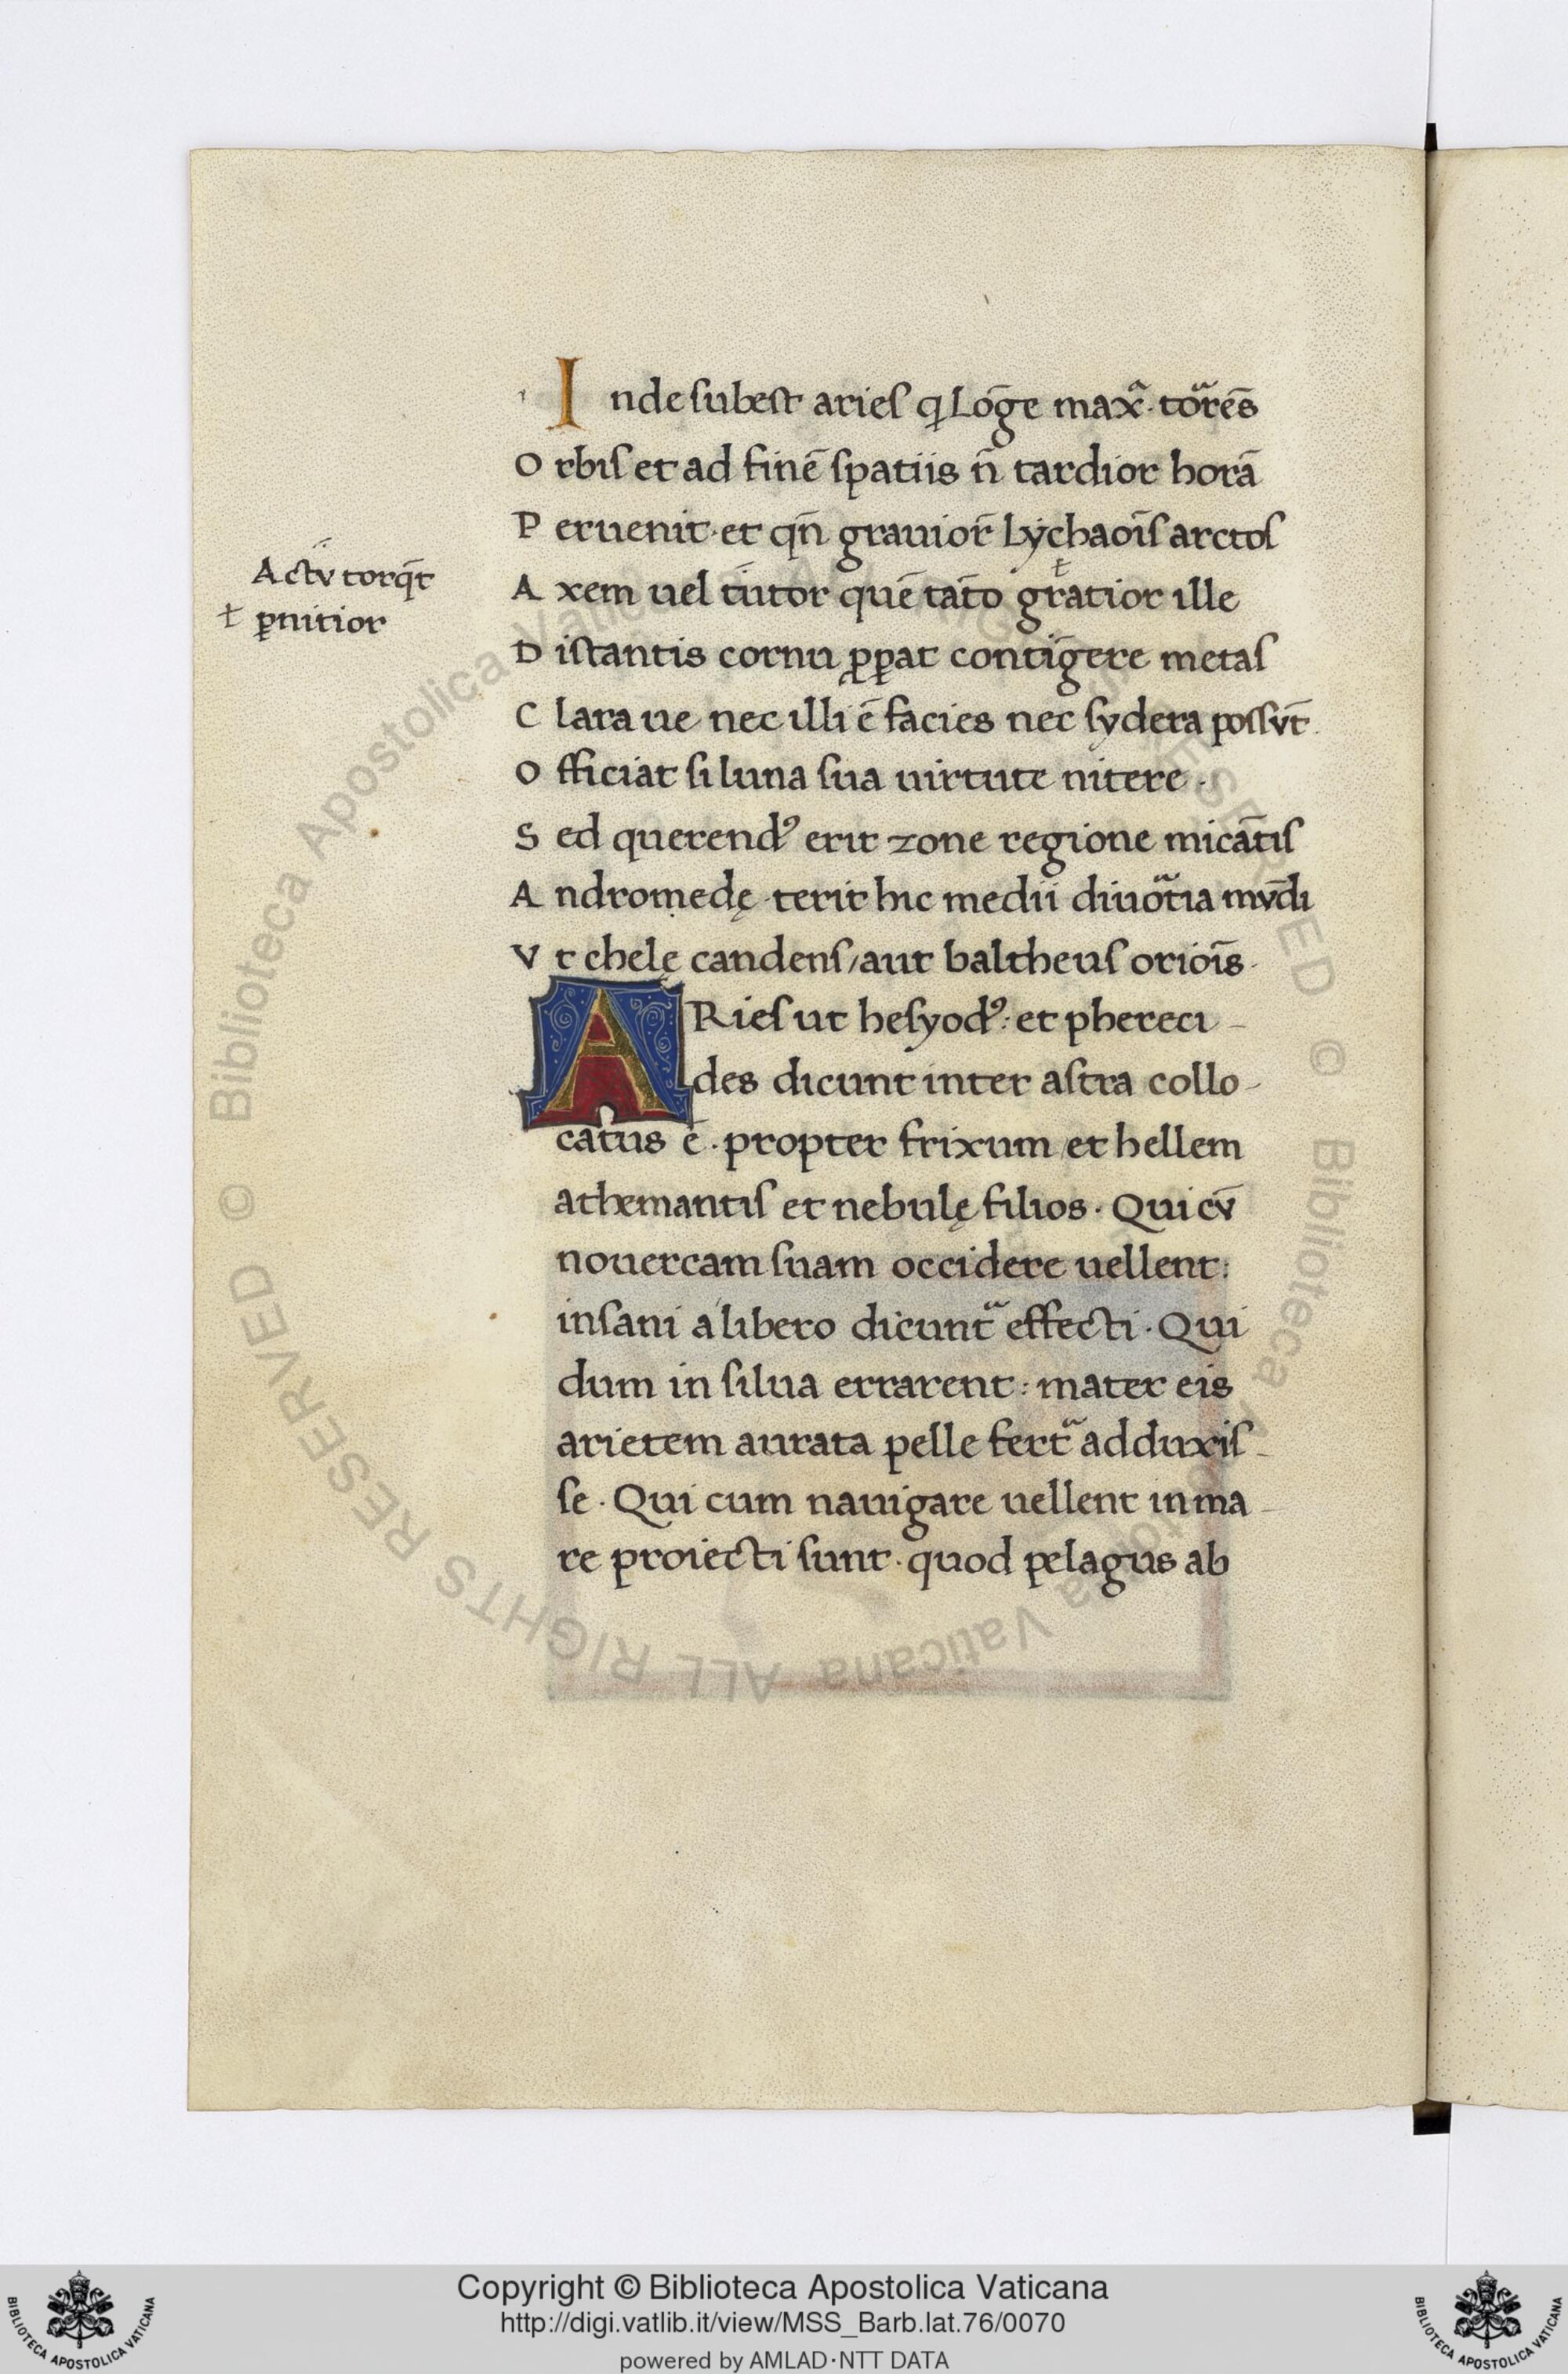 Inde subest aries q Lōge max̄. torēs
Orbis et ad finē spatiis n̄ tardior horā
Peruenit. et qn̄ grauior̄ Lychaoīs arctos
Axem uel tutor quē tāto gratior ille
Actv torq̄t
ł pnitior
Distantis cornu ppat contīgere metas
Clara ue nec illi ē facies nec sydera possvt̄.
Officiat si luna sua uirtute nitere.
Sed querend⁹ erit zone regione micātis
Andromedę terit hic medii diuotia mvdi
Vt chelę candens/aut baltheus orioīs.
ARies ut hesyod⁹: et phereci-
des dicunt inter astra collo-
catus ē. propter frixum et hellem
athemantis et nebulę filios. Qui cv̄
nouercam suam occidere uellent:
insani a libero dicuntᷓ effecti. Qui
dum in silua errarent: mater eis
arietem aurata pelle fertᷓ adduxis-
se. Qui cum nauigare uellent in ma-
re proiecti sunt. quod pelagus ab
Copyright © Biblioteca Apostolica Vaticana
http://digi.vatlib.it/view/MSS_Barb.lat.76/0070
powered by AMLAD·NTT DATA
BIBLIOTECA APOSTOLICA VATICANA
BIBLIOTECA APOSTOLICA VATICANA
© Biblioteca Apostolica Vaticana ALL RIGHTS RESERVED © Biblioteca Apostolica Vaticana ALL RIGHTS RESERVED